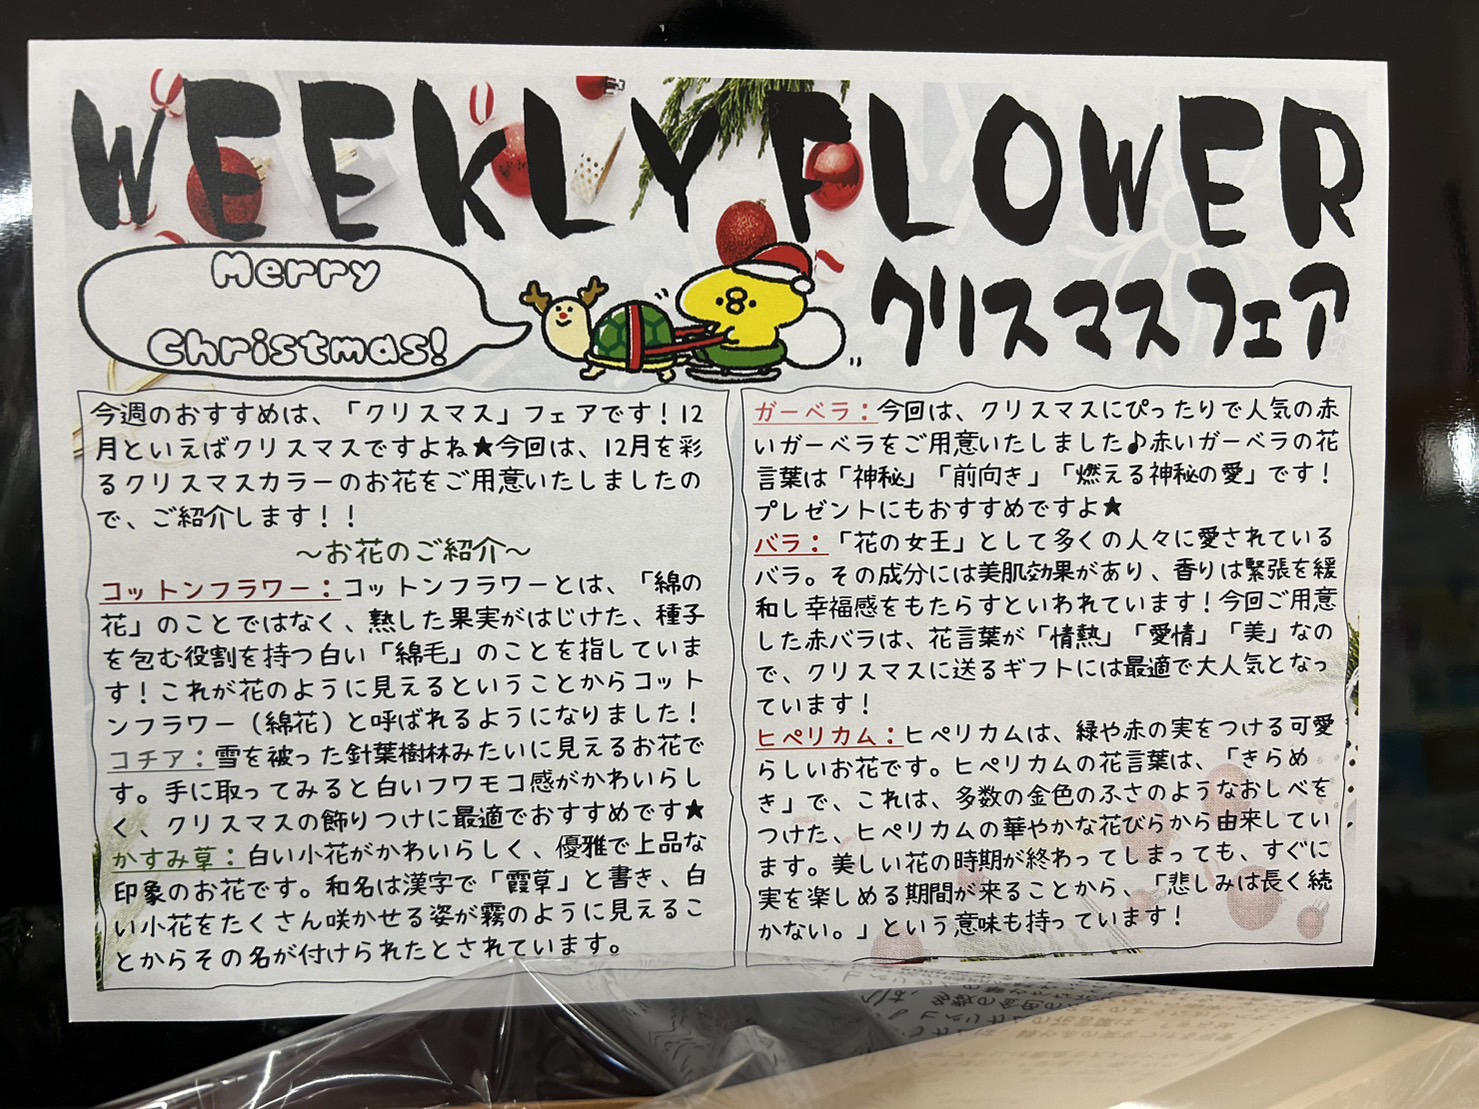 WEEKLY FLOWER
Merry
Christmas!
クリスマスフェア
今週のおすすめは、「クリスマス」フェアです！12
月といえばクリスマスですよね★今回は、12月を彩
るクリスマスカラーのお花をご用意いたしましたの
で、ご紹介します！！
～お花のご紹介～
コットンフラワー：コットンフラワーとは、「綿の
花」のことではなく、熟した果実がはじけた、種子
を包む役割を持つ白い「綿毛」のことを指していま
す！これが花のように見えるということからコット
ンフラワー（綿花）と呼ばれるようになりました！
コチア：雪を被った針葉樹林みたいに見えるお花で
す。手に取ってみると白いフワモコ感がかわいらし
く、クリスマスの飾りつけに最適でおすすめです★
かすみ草：白い小花がかわいらしく、優雅で上品な
印象のお花です。和名は漢字で「霞草」と書き、白
い小花をたくさん咲かせる姿が霧のように見えるこ
とからその名が付けられたとされています。
ガーベラ：今回は、クリスマスにぴったりで人気の赤
いガーベラをご用意いたしました♪赤いガーベラの花
言葉は「神秘」「前向き」「燃える神秘の愛」です！
プレゼントにもおすすめですよ★
バラ：「花の女王」として多くの人々に愛されている
バラ。その成分には美肌効果があり、香りは緊張を緩
和し幸福感をもたらすといわれています！今回ご用意
した赤バラは、花言葉が「情熱」「愛情」「美」なの
で、クリスマスに送るギフトには最適で大人気となっ
ています！
ヒペリカム：ヒペリカムは、緑や赤の実をつける可愛
らしいお花です。ヒペリカムの花言葉は、「きらめ
き」で、これは、多数の金色のふさのようなおしべを
つけた、ヒペリカムの華やかな花びらから由来してい
ます。美しい花の時期が終わってしまっても、すぐに
実を楽しめる期間が来ることから、「悲しみは長く続
かない。」という意味も持っています！